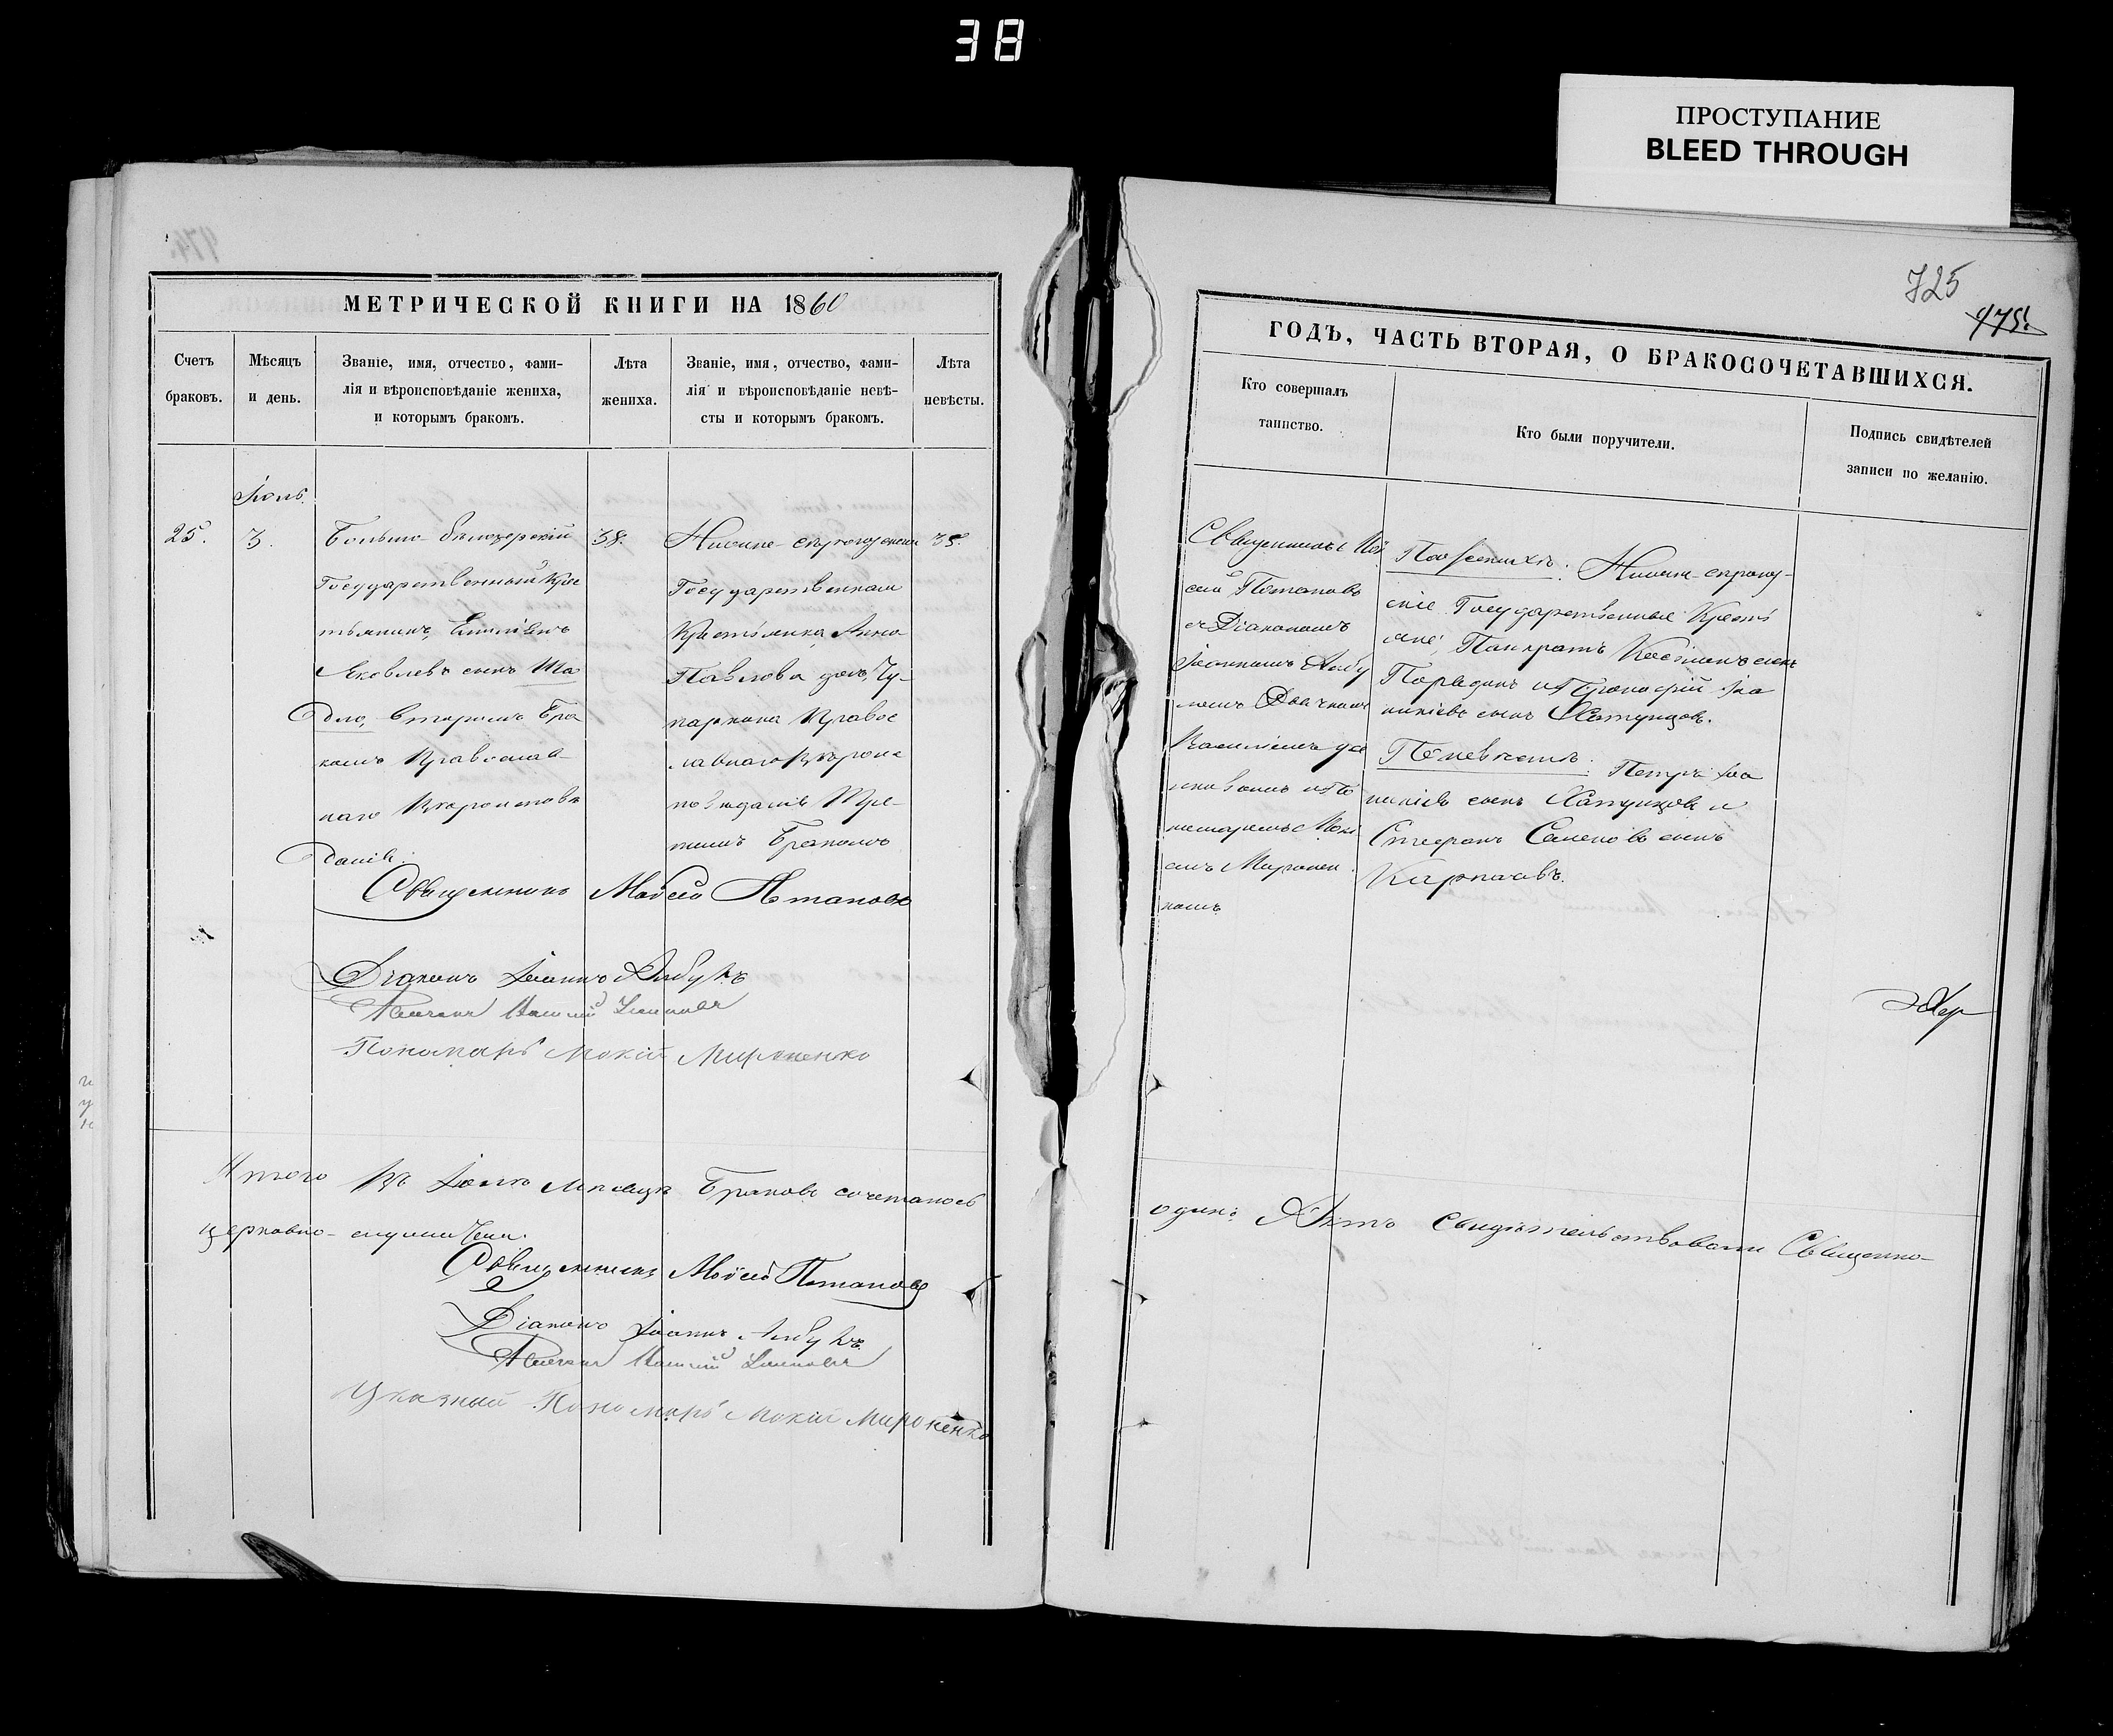 38
ПРОСТУПАНИЕ
BLEED THROUGH
МЕТРИЧЕСКОЙ КНИГИ НА 1860
Счетъ
браковъ.
Мѣсяцъ
и день.
Званіе, имя, отчество, фами-
лія и вѣроисповѣданіе жениха,
и которымъ бракомъ.
Лѣта
жениха.
Званіе, имя, отчество, фами-
лія и вѣроисповѣданіе невѣ-
сты и которымъ бракомъ.
Лѣта
невѣсты.
Іюль.
25.
3.
Больше-бѣлозерскій
Государственный Крес
тьянинъ,
Яковлевъ сынъ Ша
вторымъ Бра
комъ Православ-
наго Вѣроисповѣ
Даніе.
38.
Нижне-сѣрогозская
Государственная
Крестьянка, Анна
Павлова дочь, Чу-
паркина Правос
лавнаго Вѣроис
повѣданія Тре-
тимъ Бракомъ
35.
Священникъ Моѵсей Потаповъ
Діаконъ Іоаннъ
Василій
Пономарь Мокій Мироненко
Итого Въ Іюлѣ мѣсяцѣ Браковъ сочеталось
церковно-служители.
Священникъ Моѵсей Потаповъ
Діаконъ Іоаннъ
Василій
Указный Пономарь Мокій Мироненко
725
475.
ГОДЪ, ЧАСТЬ ВТОРАЯ, О БРАКОСОЧЕТАВШИХСЯ.
Кто совершалъ
таинство.
Кто были поручители.
Подпись свидѣтелей
записи по желанію.
Священникъ Моѵ
сей Потаповъ
съ Діакономъ
Іоанномъ
Василіемъ
номаремъ Мокі
емъ Миронен
комъ
По Женихѣ: Нижне-сѣрогоз-
скіе Государственные Кресть
яне, Панкратъ сынъ
и Прокофій Іоа
никіевъ сынъ Хатунцовъ.
По невѣстѣ: Петръ Іоа
никіевъ сынъ Хатунцовъ и
Стефанъ Семеновъ сынъ
Карпачовъ.
одинъ: свидѣтельствовали Священно-